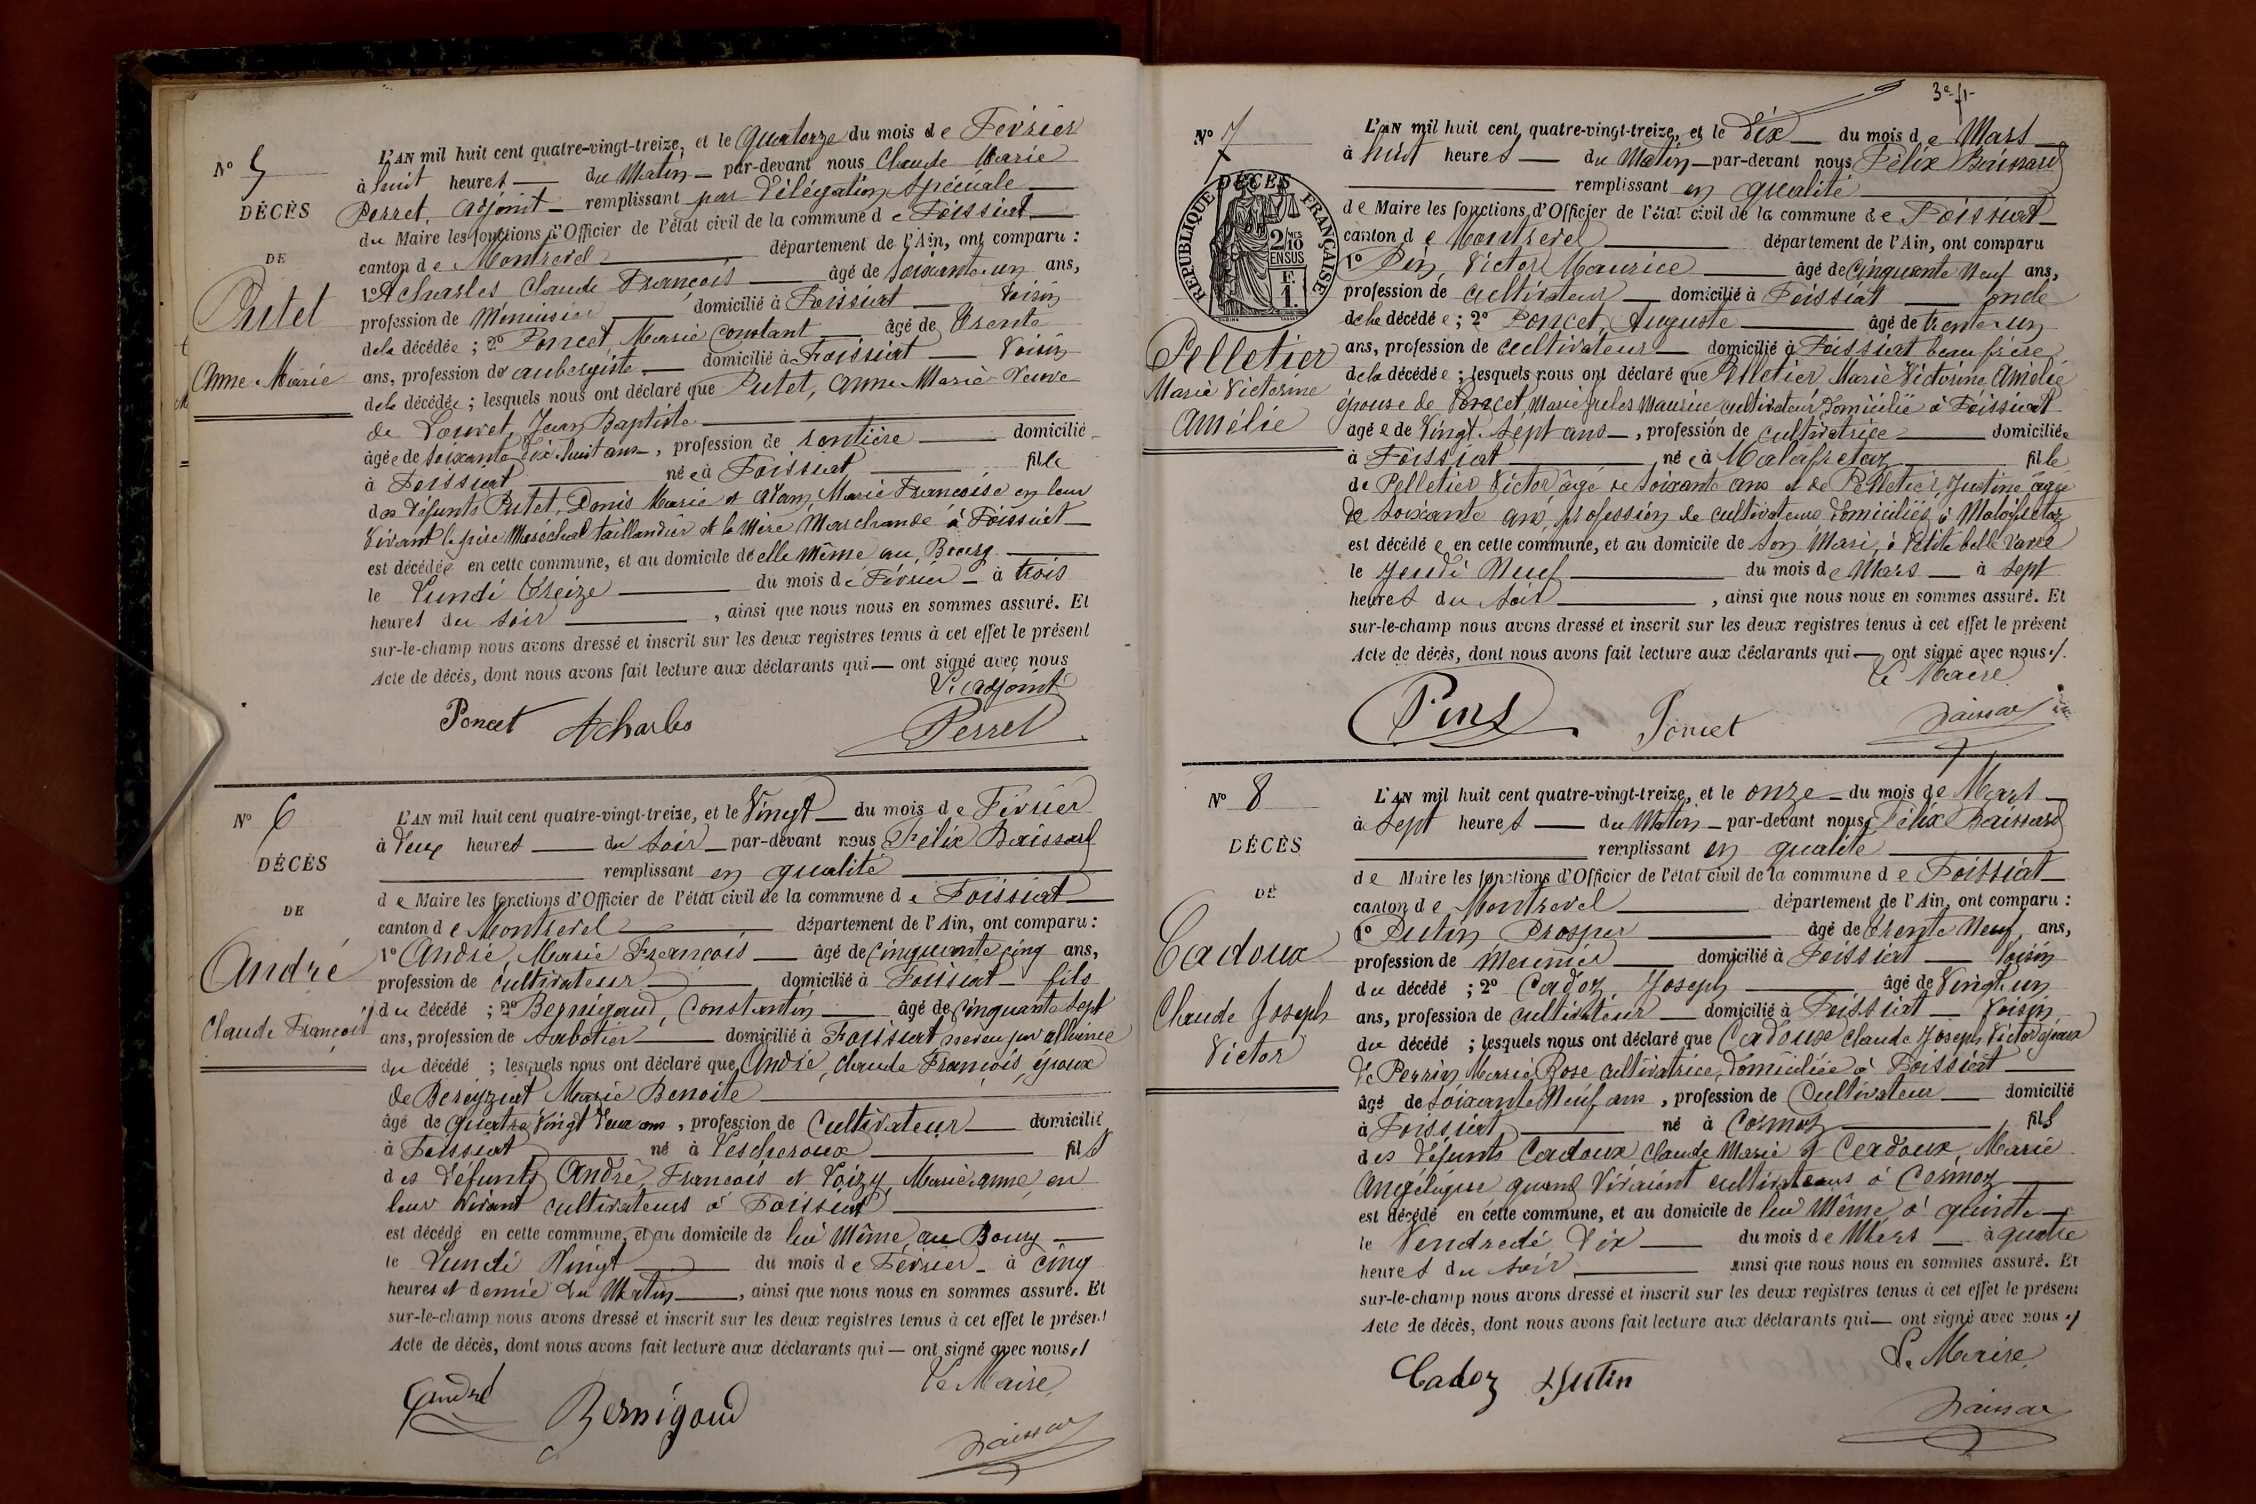 N° 5
DÉCÈS
DE
Putet
Anne Marie
L'AN mil huit cent quatre-vingt-treize, et le Quatorze du mois de Février
à huit heures du Matin par-devant nous Claude Marie
Perret, adjoint remplissant par Délégation Spéciale
du Maire les fonctions d'Officier de l'état civil de la commune de Foissiat
canton de Montrevel département de l'Ain, ont comparu :
1° Acharles Claude François âgé de soixante un ans,
profession de Menuisier domicilié à Foissiat Voisin
de la décédée ; 2° Poncet, Marie Constant âgé de Trente
ans, profession de aubergiste domicilié à Foissiat Voisin
de la décédée ; lesquels nous ont déclaré que Putet, Anne Marie Veuve
de Louvet, Jean Baptiste
âgée de soixante dix huit ans, profession de rentière domicilié
à Foissiat née à Foissiat fille
des défunts Putet, Denis Marie et Adam, Marie Françoise en leur
Vivant le père Maréchal taillandier et la Mère Marchande à Foissiat
est décédée en cette commune, et au domicile de elle même au Bourg
le Lundi Treize du mois de Février à trois
heures du soir, ainsi que nous nous en sommes assuré. Et
sur-le-champ nous avons dressé et inscrit sur les deux registres tenus à cet effet le présent
Acte de décès, dont nous avons fait lecture aux déclarants qui ont signé avec nous
L'adjoint
Poncet Acharles Perret
N° 6
DÉCÈS
DE
André
Claude François
L'AN mil huit cent quatre-vingt-treize, et le Vingt du mois de Février
à Deux heures du soir par-devant nous Félix Baissard
remplissant en qualité
de Maire les fonctions d'Officier de l'état civil de la commune de Foissiat
canton de Montrevel département de l'Ain, ont comparu :
1° André, Marie François âgé de cinquante cinq ans,
profession de cultivateur domicilié à Foissiat fils
du décédé ; 2° Bernigaud, Constantin âgé de cinquante sept
ans, profession de sabotier domicilié à Foissiat neveu par alliance
du décédé ; lesquels nous ont déclaré que André, Claude François, époux
de Bereyziat Marie Benoite
âgé de quatre Vingt Deux ans, profession de Cultivateur domicilié
à Foissiat né à Lescheroux fils
des défunts André, François et Voizy, Marie anne, en
leur Vivant cultivateurs à Foissiat
est décédé en cette commune, et au domicile de lui Même au Bourg
le Lundi Vingt du mois de Février à cinq
heures et demie du Matin, ainsi que nous nous en sommes assuré. Et
sur-le-champ nous avons dressé et inscrit sur les deux registres tenus à cet effet le présent
Acte de décès, dont nous avons fait lecture aux déclarants qui ont signé avec nous
Le Maire
André Bernigaud Baissard
3e f
N° 7
DÉCÈS
RÉPUBLIQUE FRANÇAISE
2/10 EN SUS
F.
1.
Pelletier
Marie Victorine
Amélie
L'AN mil huit cent quatre-vingt-treize, et le Dix du mois de Mars
à huit heures du Matin par-devant nous Félix Baissard
remplissant en qualité
de Maire les fonctions d'Officier de l'état civil de la commune de Foissiat
canton de Montrevel département de l'Ain, ont comparu
1° Pin, Victor Maurice âgé de cinquante Neuf ans,
profession de cultivateur domicilié à Foissiat oncle
de la décédée ; 2° Poncet, Auguste âgé de trente un
ans, profession de cultivateur domicilié à Foissiat beau frère
de la décédée ; lesquels nous ont déclaré que Pelletier Marie Victorine Amélie
épouse de Poncet, Marie Maurice cultivateur domicilié à Foissiat
âgée de Vingt sept ans, profession de cultivatrice domiciliée
à Foissiat née à Malafretaz fille
de Pelletier Victor âgé de soixante ans et de Pelletier, Justine âgée
de soixante ans, profession de cultivateurs domiciliés à Malafretaz
est décédée en cette commune, et au domicile de son Mari, à Petite belle Varre
le Jeudi Neuf du mois de Mars à sept
heures du soir, ainsi que nous nous en sommes assuré. Et
sur-le-champ nous avons dressé et inscrit sur les deux registres tenus à cet effet le présent
Acte de décès, dont nous avons fait lecture aux déclarants qui ont signé avec nous
Le Maire
Pins Poncet Baissard
N° 8
DÉCÈS
DE
Cadoux
Claude Joseph
Victor
L'AN mil huit cent quatre-vingt-treize, et le onze du mois de Mars
à Sept heures du Matin par-devant nous Félix Baissard
remplissant en qualité
de Maire les fonctions d'Officier de l'état civil de la commune de Foissiat
canton de Montrevel département de l'Ain, ont comparu :
1° Putin Prosper âgé de Trente Neuf ans,
profession de Meunier domicilié à Foissiat Voisin
du décédé ; 2° Cadoz, Joseph âgé de Vingt un
ans, profession de cultivateur domicilié à Foissiat Voisin
du décédé ; lesquels nous ont déclaré que Cadoux Claude Joseph Victor époux
de Perrin Marie Rose cultivatrice, domiciliée à Foissiat
âgé de soixante Neuf ans, profession de Cultivateur domicilié
à Foissiat né à Cormoz fils
des défunts Cadoux Claude Marie et Cadoux, Marie
Angélique quand Vivaient cultivateurs à Cormoz
est décédé en cette commune, et au domicile de lui Même à
le Vendredi Dix du mois de Mars à quatre
heures du soir ainsi que nous nous en sommes assuré. Et
sur-le-champ nous avons dressé et inscrit sur les deux registres tenus à cet effet le présent
Acte de décès, dont nous avons fait lecture aux déclarants qui ont signé avec nous
Le Maire
Cadoz Putin Baissard